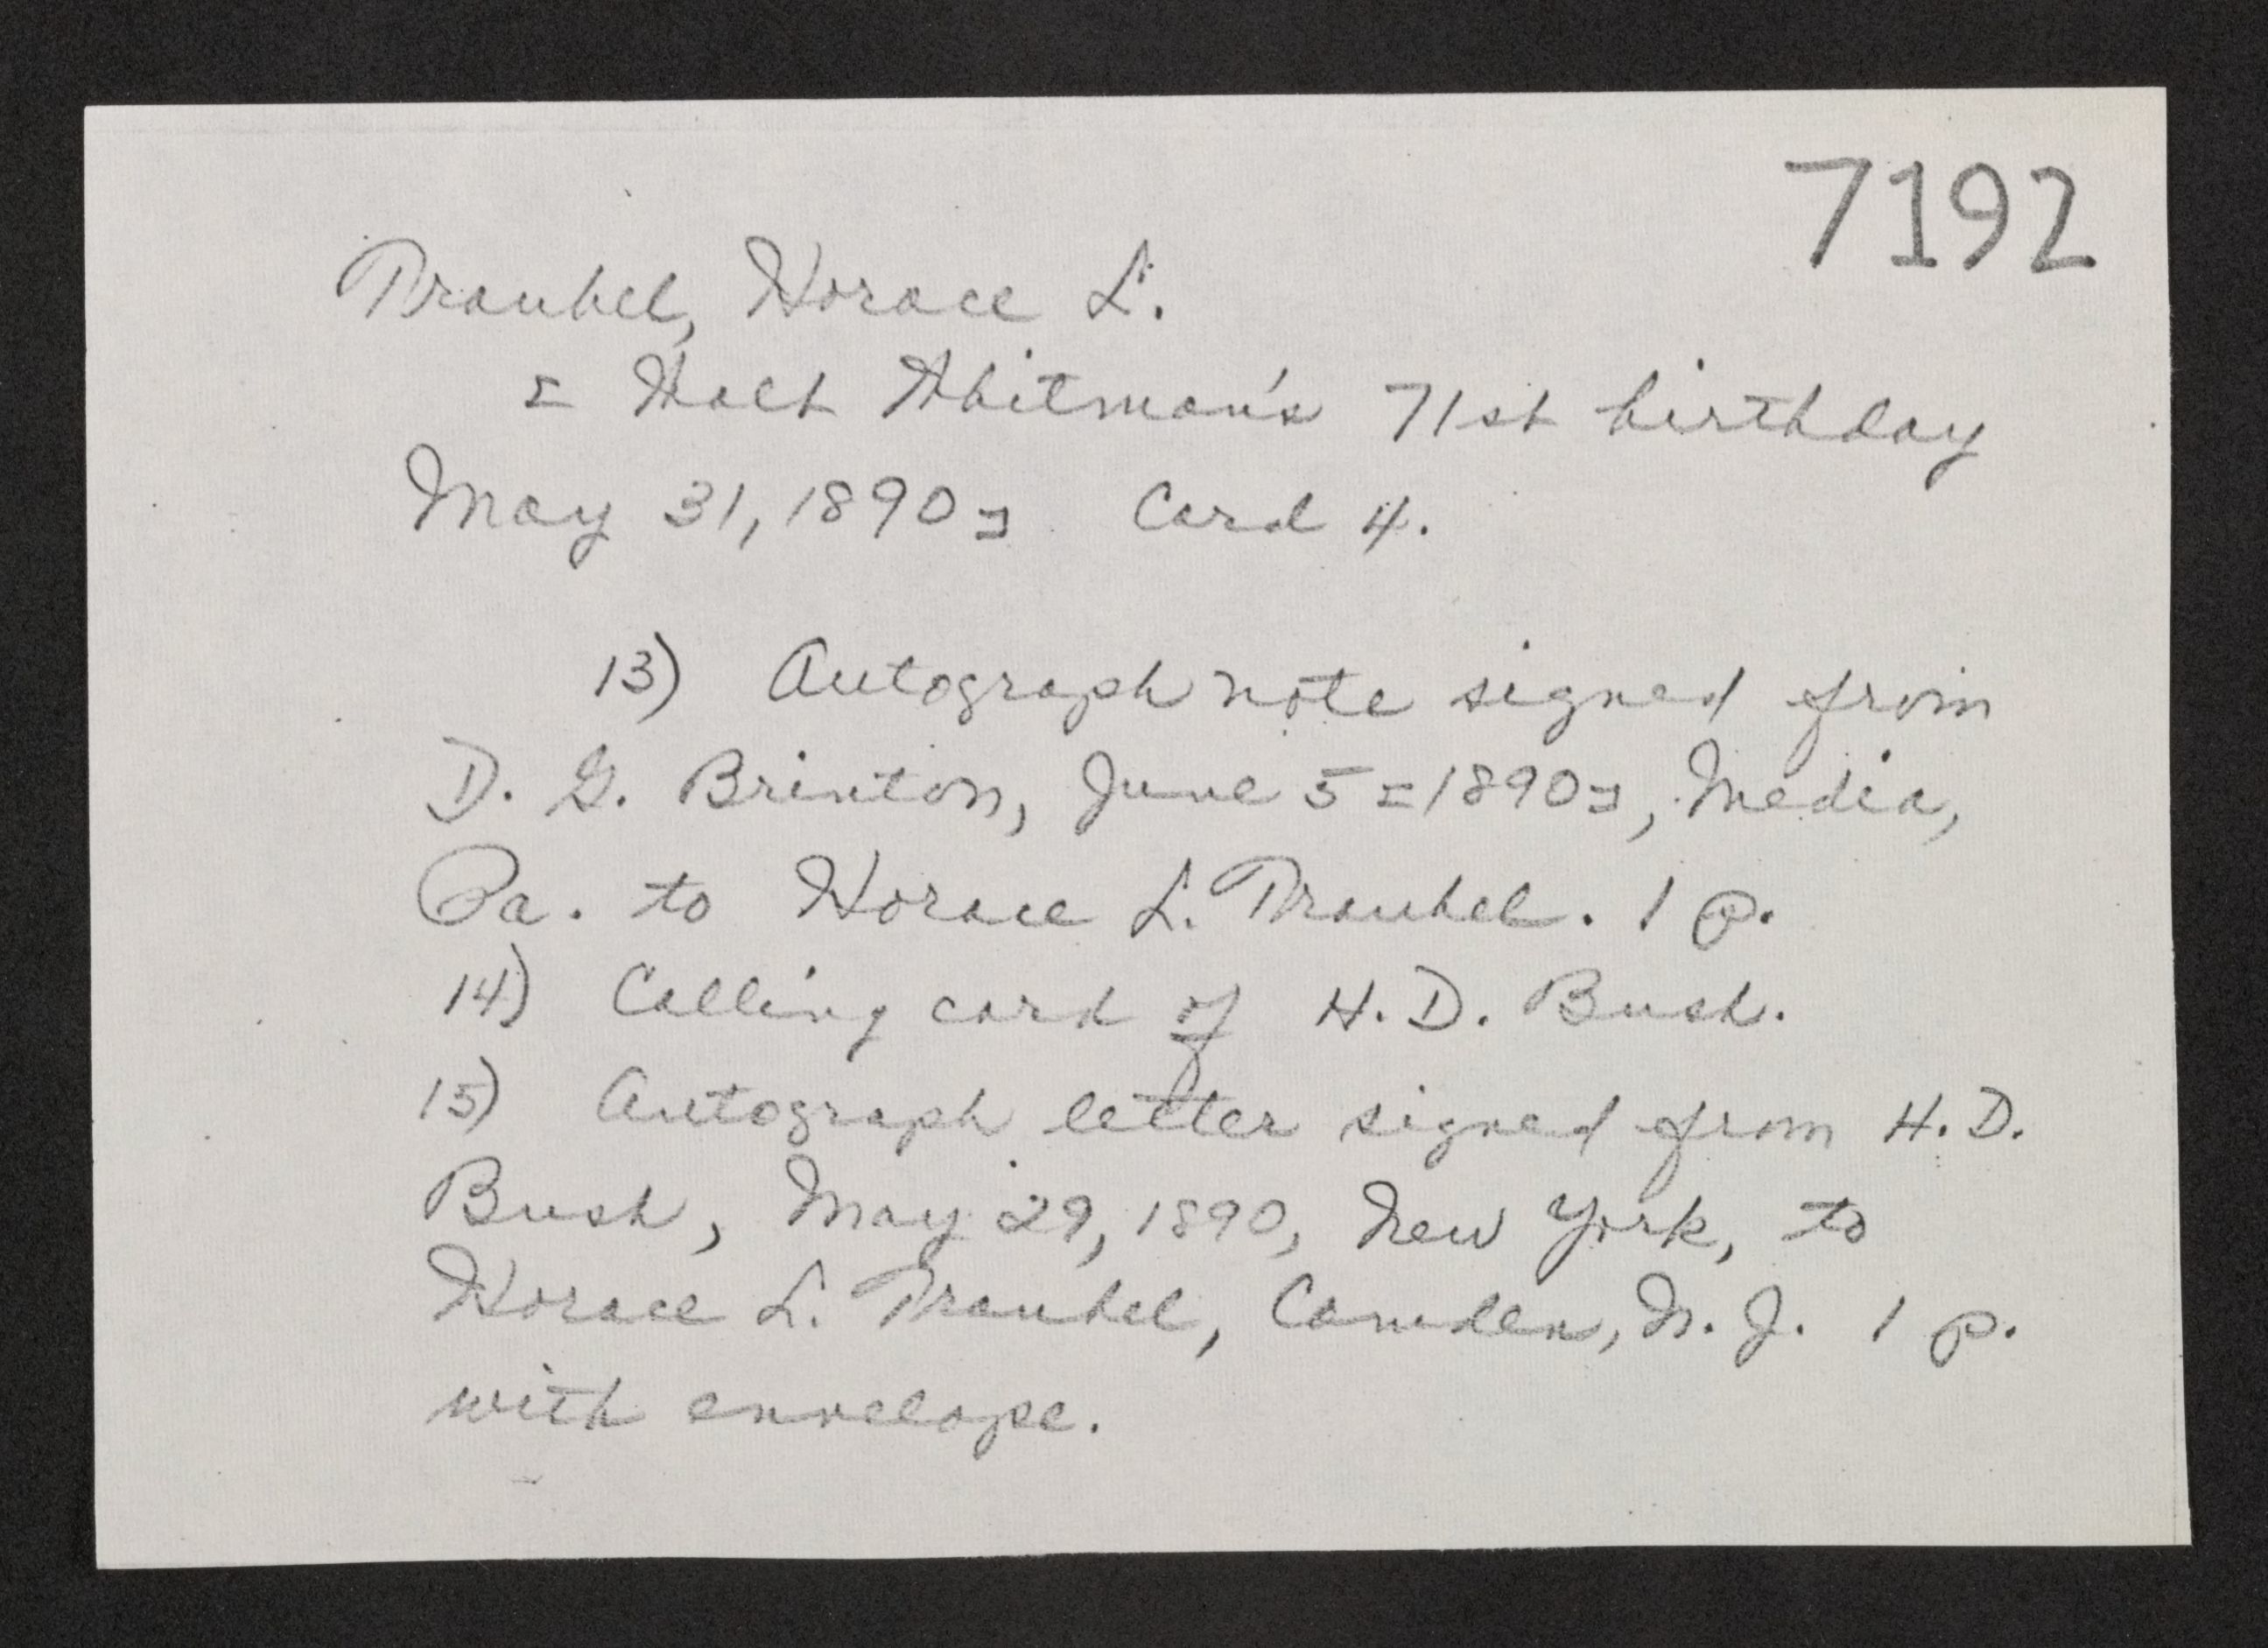 7192
Traubel, Horace L.
[Walt Whitman's 71st birthday
May 31, 1890] Card 4.
13) Autograph note signed from
D. G. Brinton, June 5 [1890], Media,
Pa. to Horace L. Traubel. 1 p.
14) Calling card of H. D. Bush.
15) Autograph letter signed from H. D.
Bush, May 29, 1890, New York, to
Horace L. Traubel, Camden, N. J. 1 p.
with envelope.